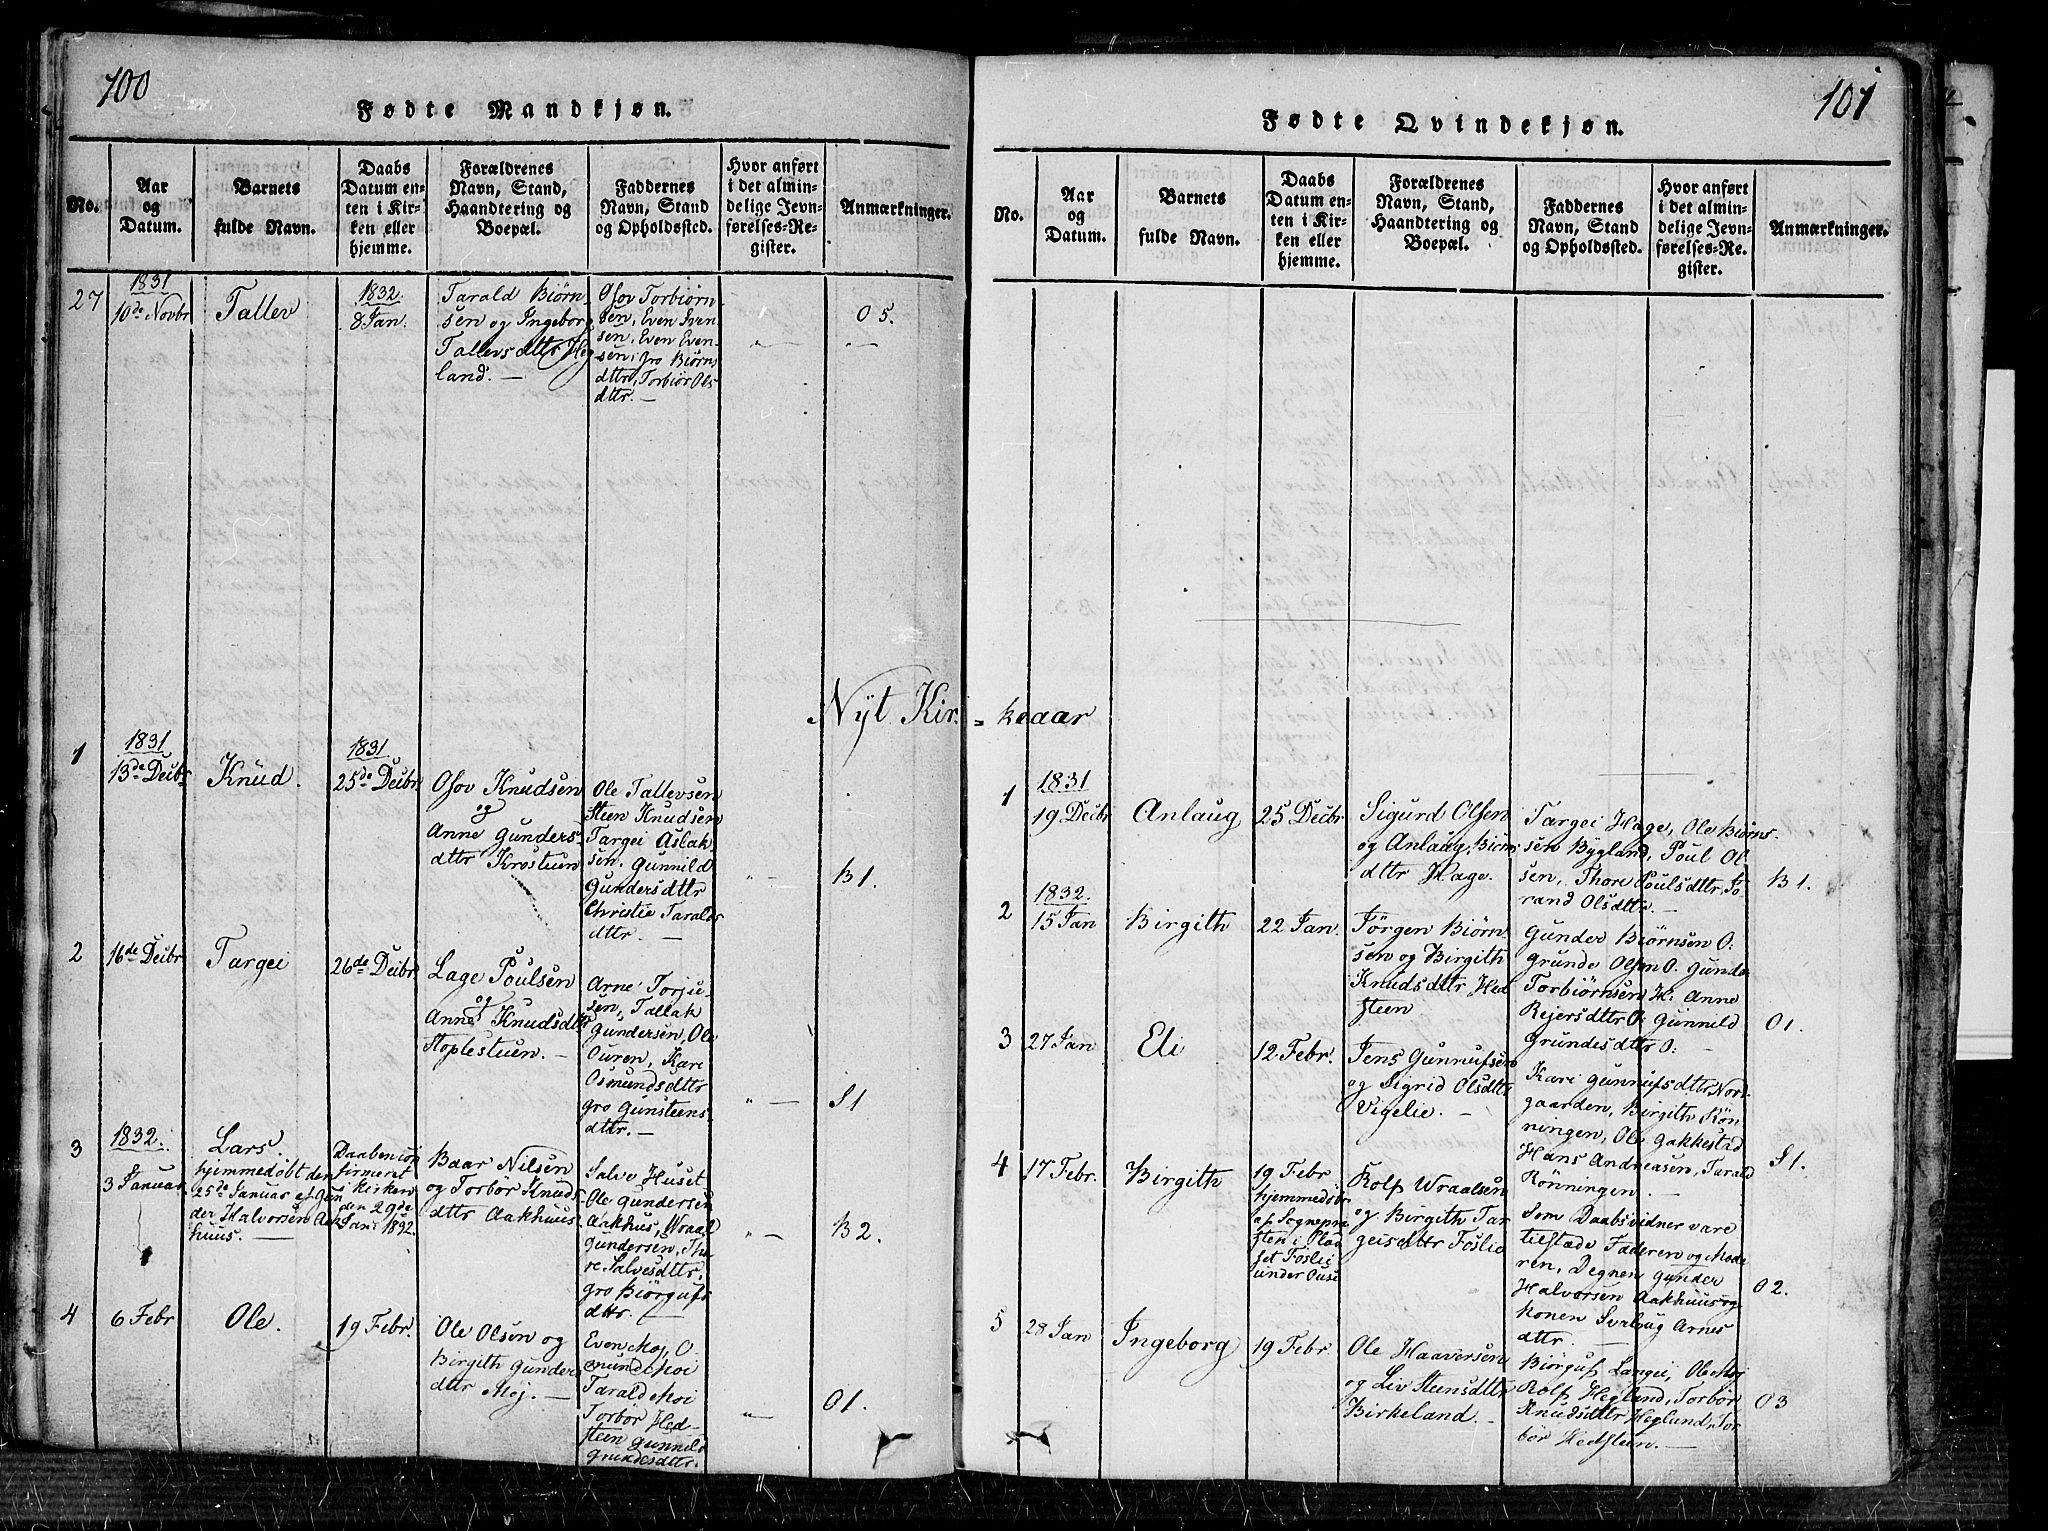 100
Fødte Mandkjøn.
No.
Aar
og
Datum.
Barnets
fulde Navn.
Daabs
Datum en-
ten i Kir-
ken eller
hjemme.
Forældrenes
Navn, Stand,
Haandtering og
Boepæl.
Faddernes
Navn, Stand
og Opholdssted.
Hvor anført
i det almin-
delige Jevn-
førelses-Re-
gister.
Anmærkninger.
27
1831
10de Novbr
Tallev
1832.
8 Jan.
Tarald Biørn-
sen og Ingeborg
Tallevsdttr Heg
land. —
Osov Torbiørn-
sen, Even Sven
sen, Even Even-
sen, Gro Biørns
dttr, Torbiør Ols
dttr. —
" —
O 5.
" —
Nÿt Kir-
1
1831
13de Decbr
Knud.
1831.
25de Decbr
Osov Knudsen
og
Anne Gunders-
dttr Krostuen
Ole Tallevsen
Steen Knudsen
Targei Aslak
sen. Gunnild
Gundersdttr
Christie Taralds
dttr. —
" —
B 1.
2
16de Decbr
Targei
26de Decbr
Lage Poulsen
og
Anne Knudsdttr
Stoplestuen. —
Arne Torju-
sen, Tallak
Gundersen, Ole
Ouren, Kare
Osmundsdttr
Gro Gunsteens-
dttr. —
" —
S 1
3
1832.
3 Januar
Lars.
hjemmedøbt den
25de Januar af Gun
der Halvorsen Aak
huus. —
Daaben con
firmeret
i Kirken
den 29de
Jani 1832
Baar Nilsen
og Torbør Knuds
dttr Aakhuus
Salve Huset
Ole Gundersen
Aakhus, Wraal
Gundersen, Tho
re Salvesdttr,
Gro Biørgufs
dttr. —
" —
B 2.
4
6 Febr
Ole.
19 Febr.
Ole Olsen og
Birgith Gunders
dttr Moj. —
Even Moj, O-
mund Moi
Tarald Moi
Torbør Hed-
steen Gunnild
Grundesdttr.
" —
O 1.
101
Fødte Qvindekjøn.
No.
Aar
og
Datum.
Barnets
fulde Navn.
Daabs
Datum en-
ten i Kir-
ken eller
hjemme.
Forældrenes
Navn, Stand,
Haandtering og
Boepæl.
Faddernes
Navn, Stand
og Opholdssted.
Hvor anført
i det almin-
delige Jevn-
førelses-Re-
gister.
Anmærkninger.
= keaar
1
1831
19 Decbr
Anlaug
25 Decbr
Sigurd Olsen
og Anlaug Biørns
dttr Hage.
Targei Hage, Ole Biørns-
sen Bygland, Poul Ol
sen, Thore Poulsdttr, To
rand Olsdttr. —
B 1.
2
1832.
15 Jan
Birgith
22 Jan.
Jørgen Biørn
sen og Birgith
Knudsdttr Hed
steen
Gunder Biørnsen O.
Grunde Olsen O. Gunde
Torbiørnsen H. Anne
Rejersdttr O. Gunnild
Grundesdttr O: —
O 1.
3
27 Jan
Eli
12 Febr.
Jens Gunnufsen
og Sigrid Olsdttr
Vigelie. —
Kari Gunnufsdttr Nor-
gaarden, Birgith Røn
ningen, Ole Gakkestad
Hans Andreasen, Tarald
Rønningen. —
S 1.
4
17 Febr.
Birgith
19 Febr
hjemmedøbt
af Sognepræ
sten i Plad
set Foslie
under Ouse
Rolf Wraalsen
og Birgith Tar
geisdttr Foslie
Som Daabsvidner vare
tilstæde Faderen og Mode
ren, Degnen Gunder
Halvorsen Aakhuus og
konen Svalaug Arnes
dttr. —
O 2.
5
28 Jan
Ingeborg
19 Febr.
Ole Haaversen
og Liv Steensdttr
Birkeland. —
Biørguf Langei, Ole Moj
Rolf Hegland, Torbør
Knudsdttr Heglund, Tor
bør Hedsteen. —
O 3